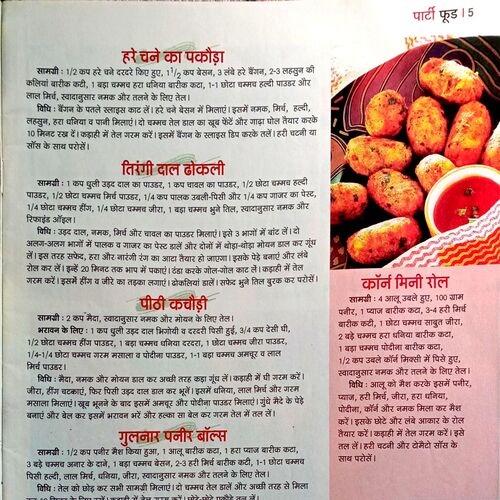 पार्टी फूड । 5
हरे चने का पकौड़ा
सामग्री : 1/2 कप हरे चने दरदरे किए हुए, 1 1/2 कप बेसन, 3 लंबे हरे बैंगन, 2-3 लहसुन की
कलियां बारीक कटी, 1 बड़ा चम्मच हरा धनिया बारीक कटा, 1-1 छोटा चम्मच हल्दी पाउडर और
लाल मिर्च, स्वादानुसार नमक और तलने के लिए तेल।
विधि : बैंगन के पतले स्लाइस काट लें। हरे चने बेसन में मिलाएं। इसमें नमक, मिर्च, हल्दी,
लहसुन, हरा धनिया व पानी मिलाएं। दो चम्मच तेल डाल का खूब फेंटें और गाढ़ा घोल तैयार करके
10 मिनट रख दें। कड़ाही में तेल गरम करें। इसमें बैंगन के स्लाइस डिप करके तलें। हरी चटनी या
सॉस के साथ परोसें।
तिरंगी दाल ढोकली
सामग्री : 1 कप धुली उड़द दाल का पाउडर, 1 कप चावल का पाउडर, 1/2 छोटा चम्मच हल्दी
पाउडर, 1/2 छोटा चम्मच मिर्च पाउडर, 1/4 कप पालक उबली-पिसी और 1/4 कप गाजर का पेस्ट,
1/4 छोटा चम्मच हींग, 1/4 छोटा चम्मच जीरा, 1 बड़ा चम्मच भुने तिल, स्वादानुसार नमक और
रिफाइंड ऑइल।
विधि : उड़द दाल, नमक, मिर्च और चावल का पाउडर मिलाएं। इसे 3 भागों में बांट लें। दो
अलग-अलग भागों में पालक व गाजर का पेस्ट डालें और दोनों में थोड़ा-थोड़ा मोयन डाल कर गूंध
लें। इस तरह सफेद, हरा और नारंगी रंग का आटा तैयार हो जाएगा। इसके पेड़े बनाएं और लंबे
रोल कर लें। इन्हें 20 मिनट तक भाप में पकाएं। ठंडा करके गोल-गोल काट लें। कड़ाही में तेल
गरम करें। इसमें हींग व जीरे का तड़का लगाएं। ढोकलियां डालें। सफेद भुने तिल बुरक कर परोसें।
पीठी कचौड़ी
सामग्री : 2 कप मैदा, स्वादानुसार नमक और मोयन के लिए तेल।
भरावन के लिए : 1 कप धुली उड़द दाल भिगोयी व दरदरी पिसी हुई, 3/4 कप देसी घी,
1/2 छोटा चम्मच हींग पाउडर, 1 बड़ा चम्मच धनिया दरदरा, 1 छोटा चम्मच जीरा पाउडर,
1/4-1/4 छोटा चम्मच गरम मसाला व पोदीना पाउडर, 1-1 बड़ा चम्मच अमचूर व लाल
मिर्च पाउडर।
विधि : मैदा, नमक और मोयन डाल कर अच्छी तरह कड़ा गूंध लें। कड़ाही में घी गरम करें।
जीरा, हींग चटकाएं, फिर पिसी उड़द दाल डाल कर भूनें। इसमें धनिया, लाल मिर्च और गरम
मसाला मिलाएं। खूब भूनने के बाद इसमें अमचूर और पोदीना पाउडर मिलाएं। गुंधे मैदे के पेड़े
बनाएं और बेल कर इसमें भरावन भरें और हल्का सा बेल कर गरम तेल में तल लें।
गुलनार पनीर बॉल्स
सामग्री : 1/2 कप पनीर मैश किया हुआ, 1 आलू बारीक कटा, 1 हरा प्याज बारीक कटा,
3 बड़े चम्मच अनार के दाने, 1 बड़ा चम्मच बेसन, 2-3 हरी मिर्च बारीक कटी, 1-1 छोटा चम्मच
पिसी हल्दी, लाल मिर्च, धनिया, जीरा, स्वादानुसार नमक और तलने के लिए तेल।
विधि : तेल को छोड़ कर सभी सामग्री मिलाएं। दो चम्मच तेल डालें और अच्छी तरह से मिला
कॉर्न मिनी रोल
सामग्री : 4 आलू उबले हुए, 100 ग्राम
पनीर, 1 प्याज बारीक कटा, 3-4 हरी मिर्च
बारीक कटी, 1 छोटा चम्मच साबुत जीरा,
2 बड़े चम्मच हरा धनिया बारीक कटा,
1 बड़ा चम्मच पोदीना बारीक कटा,
1/2 कप उबले कॉर्न मिक्सी में पिसे हुए,
स्वादानुसार नमक और तलने के लिए तेल।
विधि : आलू को मैश करके इसमें पनीर,
प्याज, हरी मिर्च, जीरा, हरा धनिया,
पोदीना, कॉर्न और नमक मिला कर मैश
करें। इसके छोटे और लंबे आकार के रोल
तैयार करें। कड़ाही में तेल गरम करें। इसे
तल लें। हरी चटनी और टोमैटो सॉस के
साथ परोसें।